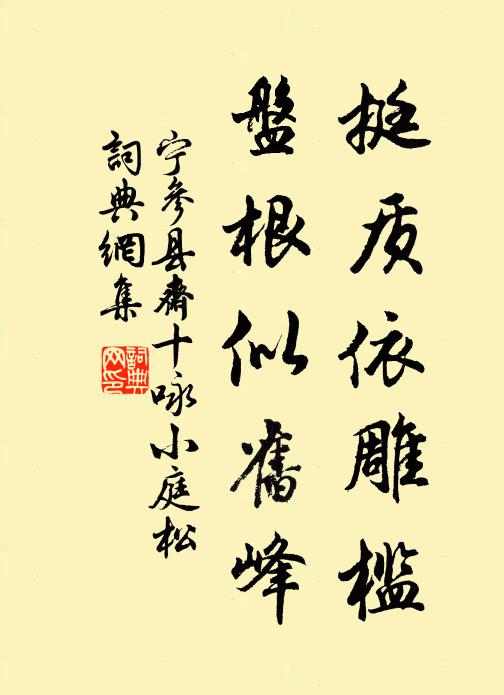 挺质依雕槛
盤根似舊峰
宁参县齋十咏小庭松
詞典網集
詞典
网印